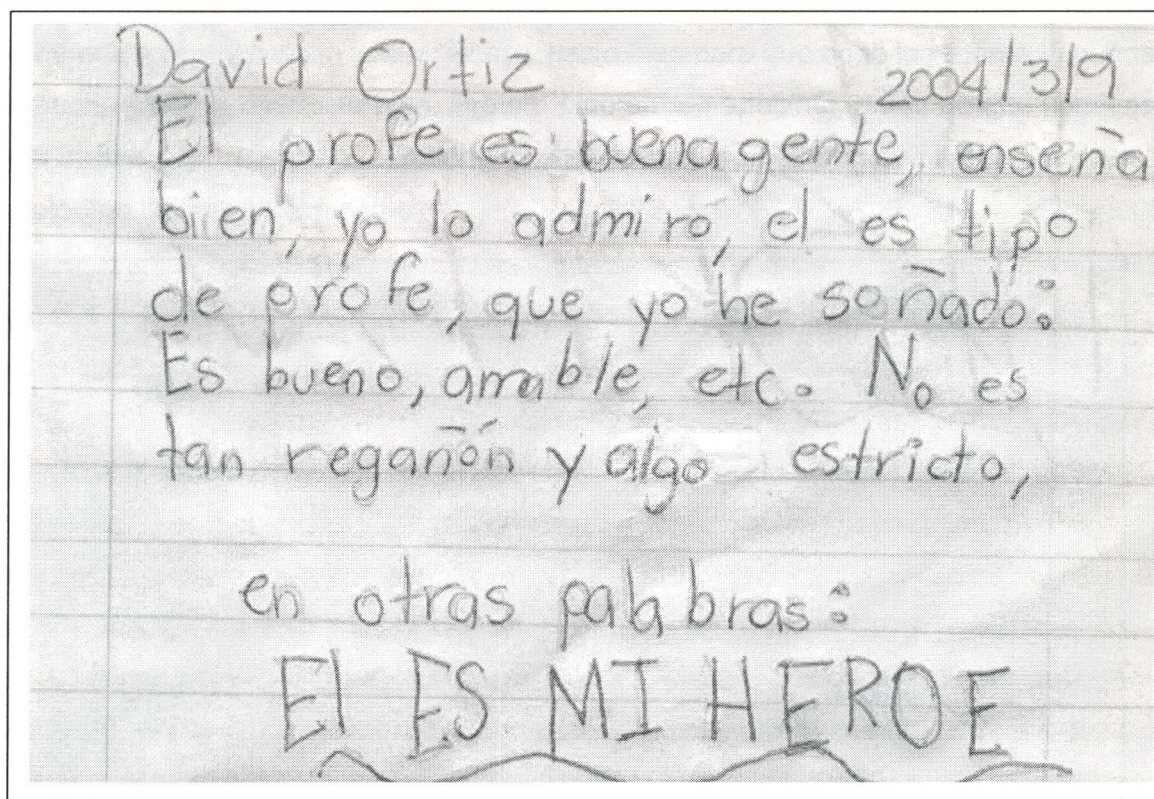 David Ortiz 2004/3/9
El profe es buena gente, enseña
bien, yo lo admiro, el es tipo
de profe, que yo he soñado:
Es bueno, amable, etc. No es
tan regañón y algo estricto,
en otras palabras:
El ES MI HEROE